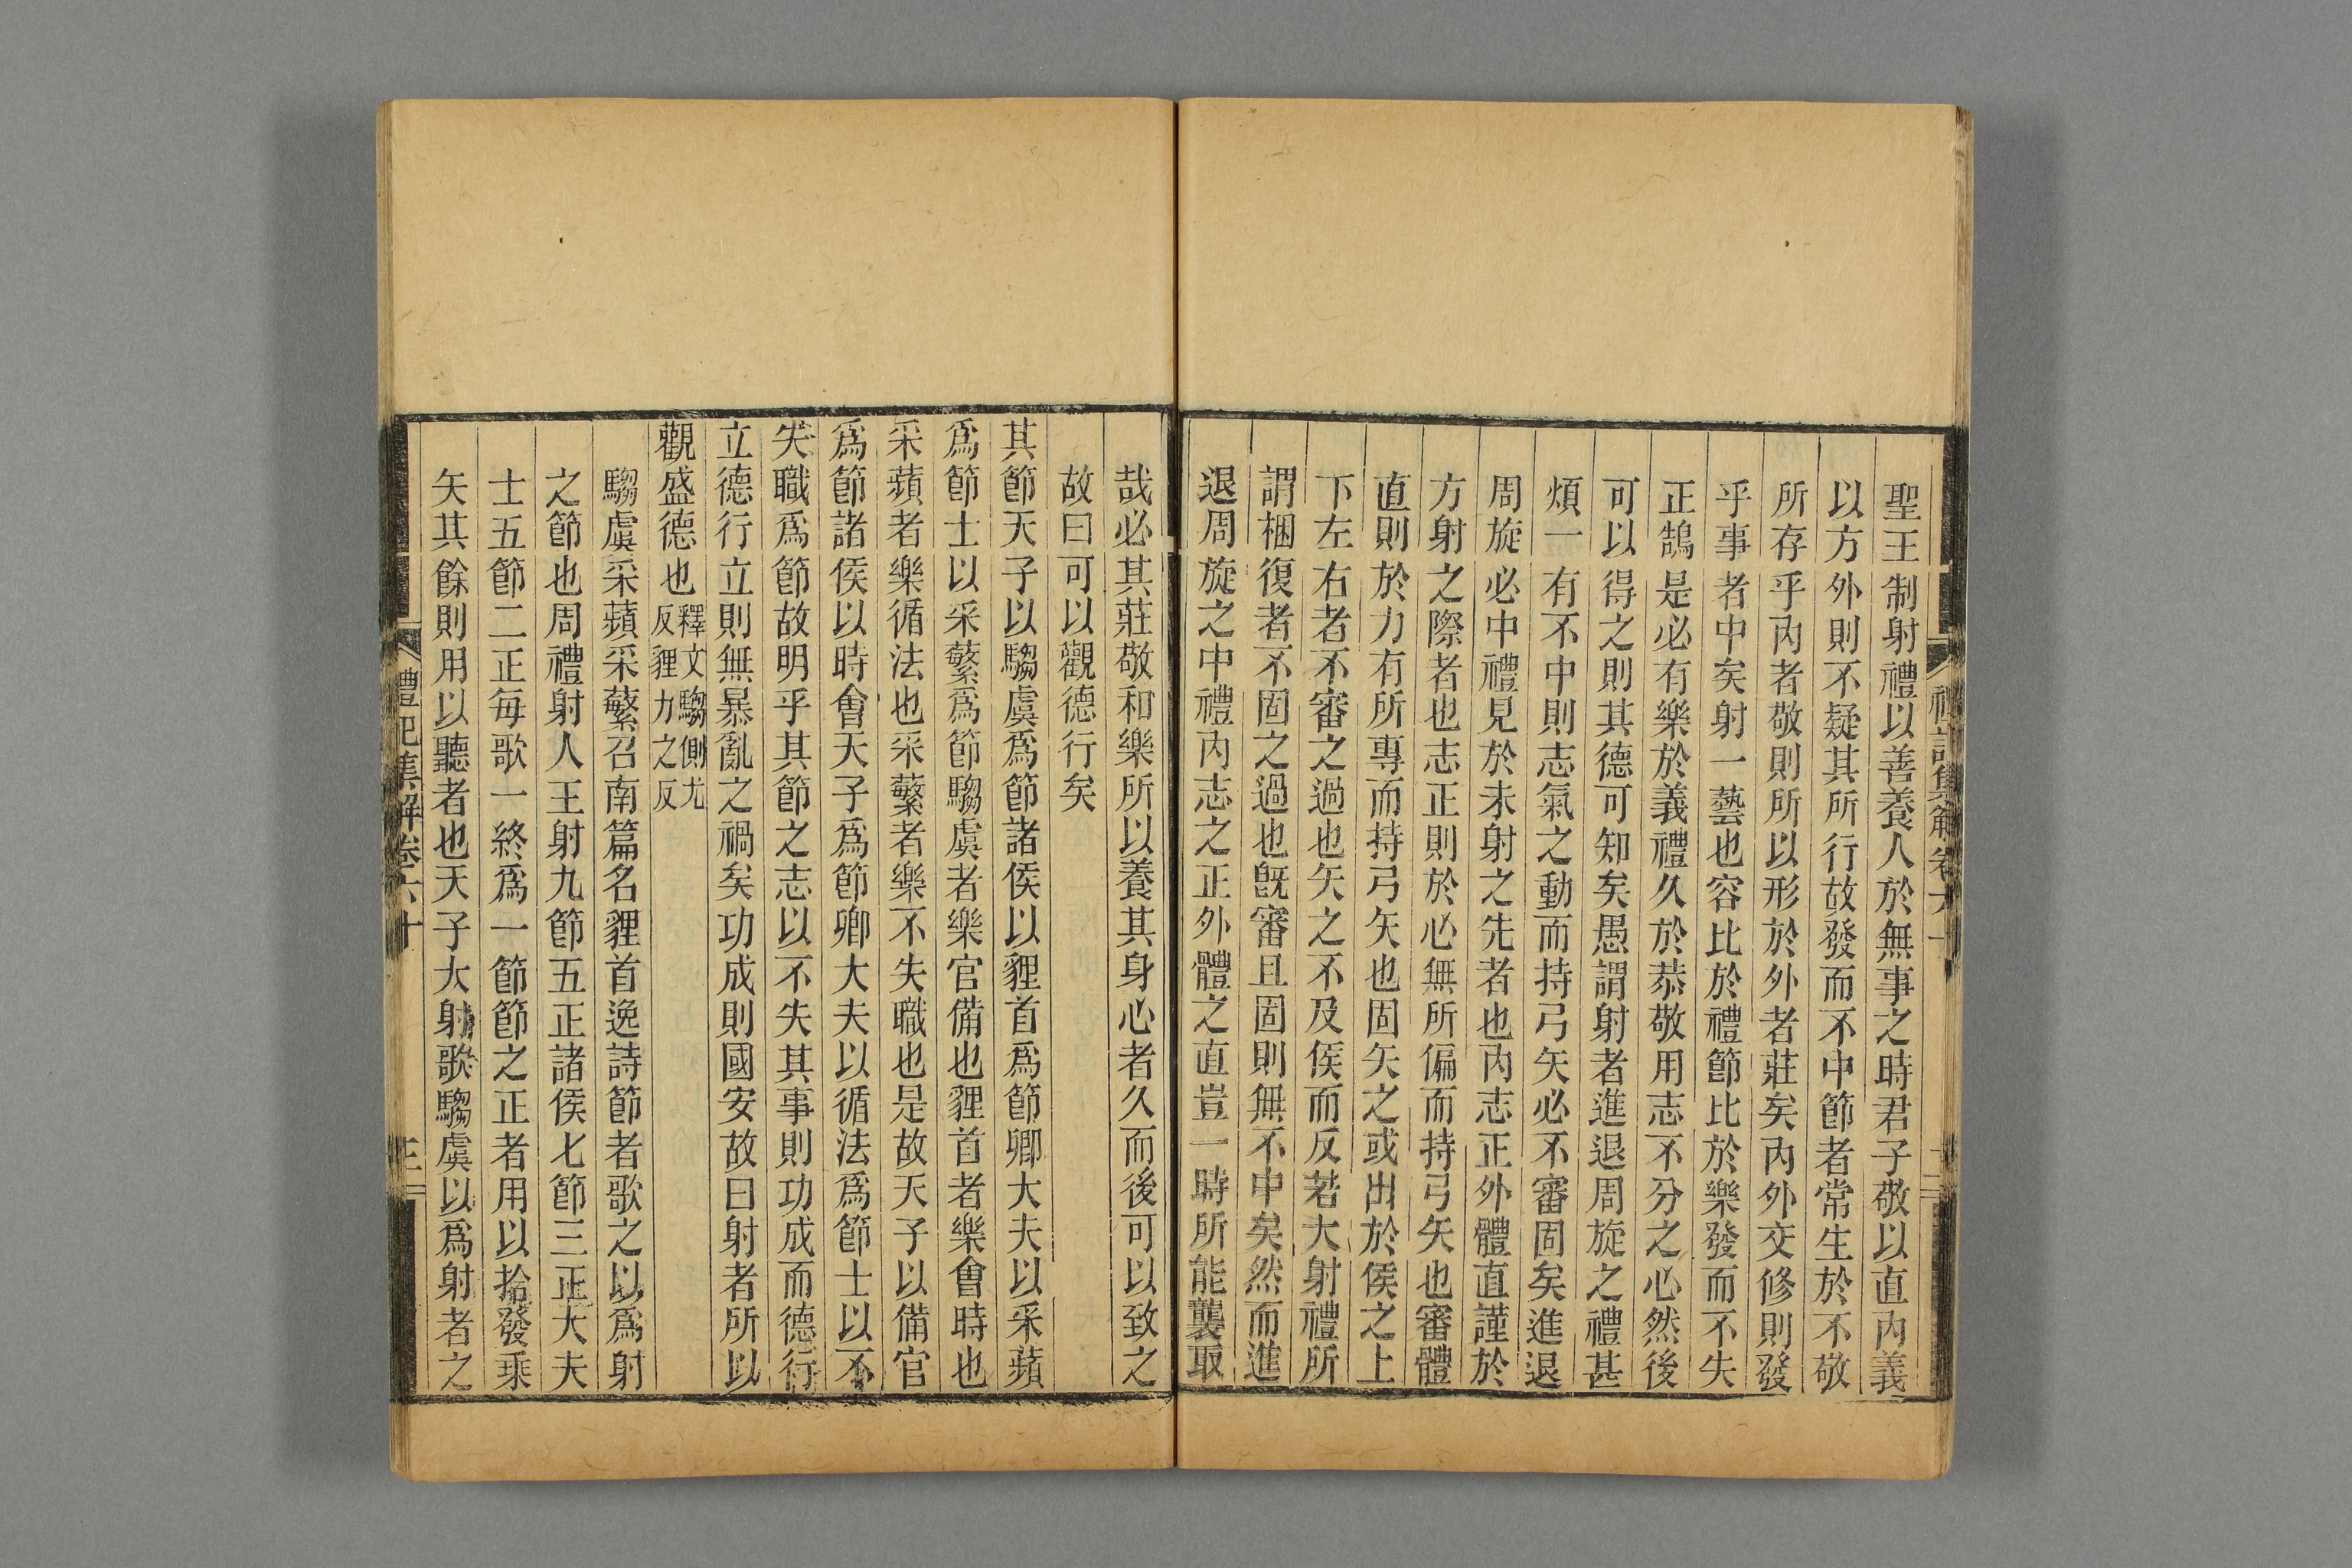 聖王制射禮以善養人於無事之時君子敬以直內義
以方外則不疑其所行故發而不中節者常生於不敬
所存乎內者敬則所以形於外者莊矣內外交修則發
乎事者中矣射一藝也容比於禮節比於樂發而不失
正鵠是必有樂於義禮久於恭敬用志不分之心然後
可以得之則其德可知矣愚謂射者進退周旋之禮甚
煩一有不中則志氣之動而持弓矢必不審固矣進退
周旋必中禮見於未射之先者也內志正外體直謹於
方射之際者也志正則於心無所偏而持弓矢也審體
直則於力有所專而持弓矢也固矢之或出於侯之上
下左右者不審之過也矢之不及侯而反若大射禮所
謂梱復者不固之過也既審且固則無不中矣然而進
退周旋之中禮內志之正外體之直豈一時所能襲取
哉必其莊敬和樂所以養其身心者久而後可以致之
故曰可以觀德行矣
其節天子以騶虞爲節諸侯以貍首爲節卿大夫以采蘋
爲節士以采蘩爲節騶虞者樂官備也貍首者樂會時也
采蘋者樂循法也采蘩者樂不失職也是故天子以備官
爲節諸侯以時會天子爲節卿大夫以循法爲節士以不
失職爲節故明乎其節之志以不失其事則功成而德行
立德行立則無暴亂之禍矣功成則國安故曰射者所以
觀盛德也釋文騶側尤
反貍力之反
騶虞采蘋采蘩召南篇名貍首逸詩節者歌之以爲射
之節也周禮射人王射九節五正諸侯七節三正大夫
士五節二正每歌一終爲一節節之正者用以拾發乘
矢其餘則用以聽者也天子大射歌騶虞以爲射者之
禮記集解卷六十